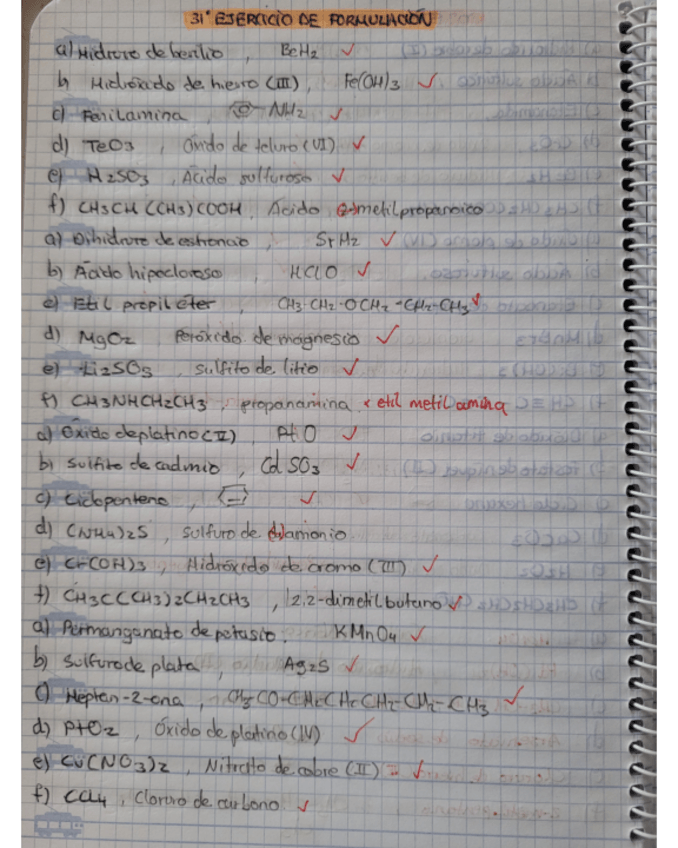 31° EJERCICIO DE FORMULACIÓN
a) Hidruro de berilio , BeH2 ✓
b) Hidróxido de hierro (III), Fe(OH)3 ✓
c) Fenilamina , NH2 ✓
d) TeO3 , óxido de teluro (VI) ✓
e) H2SO3 , Ácido sulfuroso ✓
f) CH3CH(CH3)COOH, Ácido metilpropanoico
a) Dihidruro de estroncio , SrH2 ✓
b) Ácido hipocloroso , HClO ✓
c) Etil propil éter , CH3-CH2-OCH2-CH2-CH3 ✓
d) MgO2 Peróxido de magnesio ✓
e) Li2SO3 , sulfito de litio ✓
f) CH3NHCH2CH3 , propanamina x etil metil amina
a) Óxido de platino (II) , PtO ✓
b) Sulfito de cadmio , CdSO3 ✓
c) Ciclopenteno , ✓
d) (NH4)2S , sulfuro de amonio
e) Cr(OH)3 , Hidróxido de cromo (III) ✓
f) CH3C(CH3)2CH2CH3 , 2,2-dimetilbutano ✓
a) Permanganato de potasio , KMnO4 ✓
b) Sulfuro de plata , Ag2S ✓
c) Heptan-2-ona , CH3CO-CH2CH2CH2-CH2-CH3 ✓
d) PtO2 , óxido de platino (IV) ✓
e) Cu(NO3)2 , Nitrato de cobre (II) ✓
f) CCl4 , Cloruro de carbono ✓